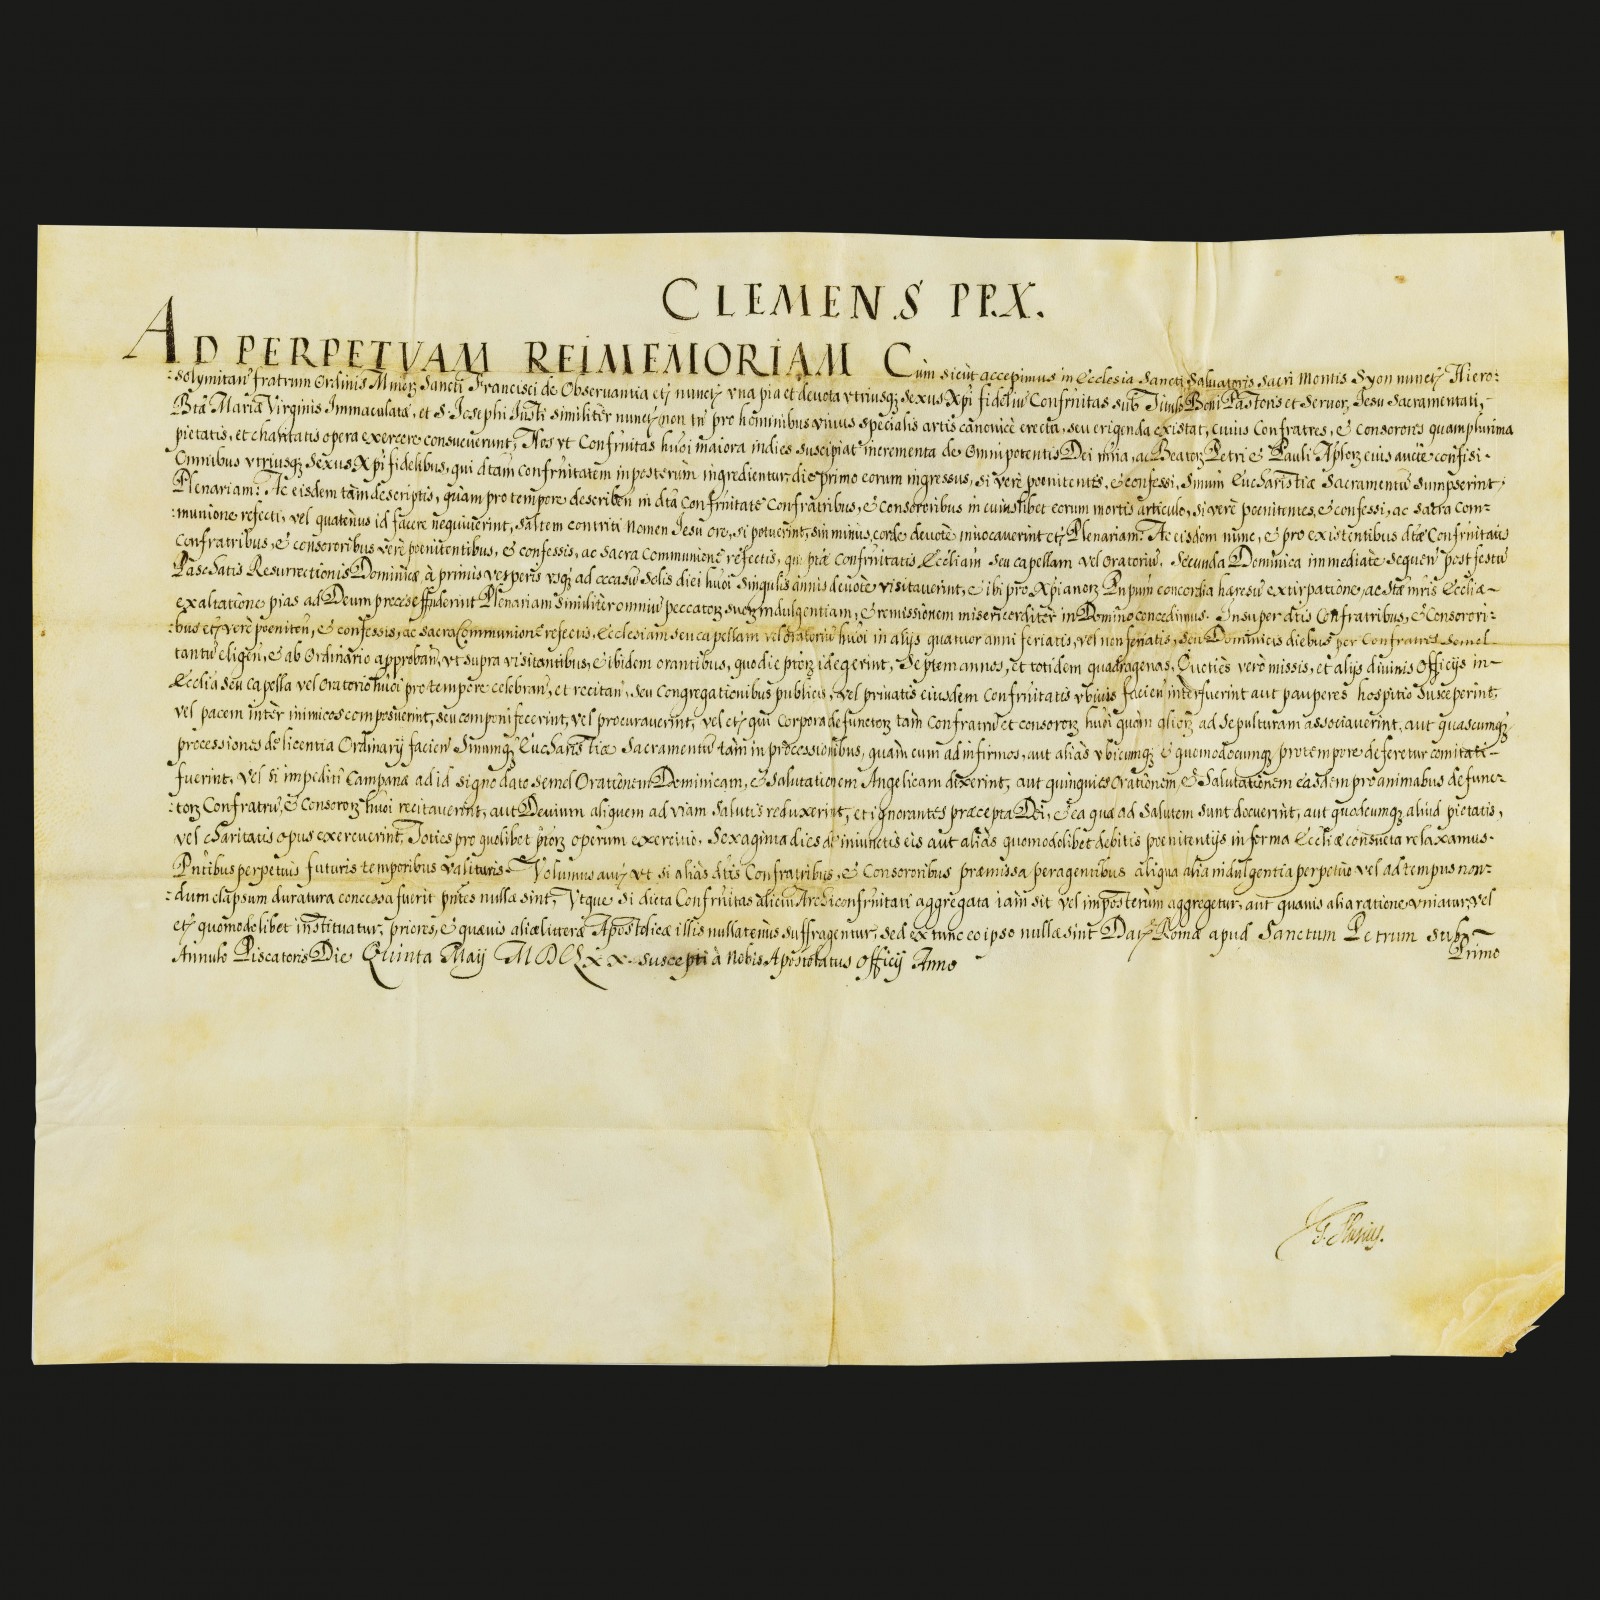 CLEMENS PP.X.
AD PERPETVAM REI MEMORIAM Cum sicut accepimus in Ecclesia Sancti Saluatoris Sacri Montis Syon nuncꝫ Hiero-
:solymitan̄ fratrum Ordinis Minorꝫ Sancti Francisci de Obseruantia etꝫ nuncꝫ vna pia et deuota vtriusqꝫ Sexus Xp̄i fidelium Confr̄nitas sub Titulo Boni Pastoris et Seruorꝫ Iesu Sacramentati,-
Btā Mariā Virginis Immaculatæ, et S. Iosephi Iusti similiter nuncꝫ non tn̄ pro hominibus vnius specialis artis canonicè erecta, seu erigenda existat, cuius Confratres, & Consorores quamplurima
pietatis, et charitatis opera exercere consueuerunt, Nos vt Confr̄nitas hm̄oi maiora indies suscipiat incrementa de Omnipotentis Dei mīa, ac Beatorꝫ Petri & Pauli Ap̄lorꝫ eius aucte confisi-
Omnibus vtriusqꝫ Sexus Xp̄i fidelibus, qui dtam Confr̄nitatem inposterum ingredientur, die primo eorum ingressus, si verè poenitentes, & confessi, Smum Eucharistiæ Sacramentū sumpserint,
Plenariam: Ac eisdem tàm descriptis, quàm pro tempore describen̄ in dtā Confr̄nitatē Confratribus, & Consororibus in cuiuslibet eorum mortis articulo, si verè poenitentes, & confessi, ac sacra Com-
:munione refecti, vel quatenus id facere nequiuerint, saltem contriti Nomen Iesu ore, si potuerint, sin minus, corde deuotè inuocauerint etꝫ Plenariam: Ac eisdem nunc, & pro existentibus dtæ Confr̄nitatis
Confratribus, & consororibus verè poenitentibus, & confessis, ac Sacra Communione refectis, qui ptæ Confr̄nitatis Eccliam seu capellam vel Oratoriū, Secunda Dominica immediatè sequen̄ post festū
Paschatis Resurrectionis Dominicæ, à primis vesperis vsqꝫ ad occasū Solis diei hm̄oi singulis annis deuotè visitauerint, & ibi pro Xp̄ianorꝫ Pn̄pum concordia hæresū extirpatione, ac Stæ mr̄is Eccliæ-
exaltatione pias ad Deum preces effuderint Plenariam similiter omniū peccatorꝫ suorꝫ Indulgentiam, & remissionem misericorditer in Domino concedimus. Insuper dtis Confratribus, & Consorori-
:bus etꝫ verè poeniten̄, & confessis, ac sacra Communione refectis, Ecclesiam seu capellam vel Oratoriū hm̄oi in alijs quatuor anni feriatis, vel non feriatis, seu Dominicis diebus per Confratres semel
tantū eligen̄, & ab Ordinario approban̄, vt supra visitantibus, & ibidem orantibus, quo die ptorꝫ id egerint, Septem annos, et totidem quadragenas, Quoties verò missis, et alijs diuinis Officijs in-
Ecclia seu Capella vel Oratorio hm̄oi pro tempore celebran̄, et recitan̄, seu Congregationibus publicis, vel priuatis eiusdem Confr̄nitatis vbiuis facien̄ interfuerint aut pauperes hospitio susceperint,
vel pacem inter inimicos composuerint, seu componi fecerint, vel procurauerint, vel etꝫ qui Corpora defunctorꝫ tàm Confratrū et consororꝫ hm̄oi quàm aliorꝫ ad Sepulturam associauerint, aut quascumqꝫ
processiones de licentia Ordinarij facien̄ Smumqꝫ Eucharistiæ Sacramentū tàm in processionibus, quàm cum ad infirmos, aut aliàs vbicumqꝫ & quomodocumqꝫ pro tempore deferetur comitati-
fuerint, vel si impediti Campana ad id signo dato semel Orationem Dominicam, & Salutationem Angelicam dixerint, aut quinquies Orationem, & Salutationem easdem pro animabus defunc-
:torꝫ Confratrū, & Consororꝫ hm̄oi recitauerint, aut Deuium aliquem ad viam Salutis reduxerint, et ignorantes præcepta Dei, & ea quæ ad Salutem sunt docuerint, aut quodcumqꝫ aliud pietatis,
vel charitatis opus exercuerint, Toties pro quolibet ptorꝫ operum exercitio, Sexaginta dies de iniunctis eis aut aliàs quomodolibet debitis poenitentijs in forma Eccliæ consueta relaxamus.
Pn̄tibus perpetuis futuris temporibus valituris. Volumus autꝫ vt si aliàs dtis Confratribus, & Consororibus præmissa peragentibus aliqua alia indulgentia perpetuo vel ad tempus non-
:dum elapsum duratura concessa fuerit pn̄tes nullæ sint, Vtque si dicta Confr̄nitas alicui Archiconfr̄nitati aggregata iam sit vel imposterum aggregetur, aut quauis alia ratione vniatur, vel
etꝫ quomodolibet instituatur, priores, & quæuis aliæ litteræ Apostolicæ illis nullatenus suffragentur, sed ex tunc eo ipso nullæ sint Datꝫ Romæ apud Sanctum Petrum sub-
Annulo Piscatoris Die Quinta Maij MDCLXX. suscepti à Nobis Apostolatus Officij Anno Primo